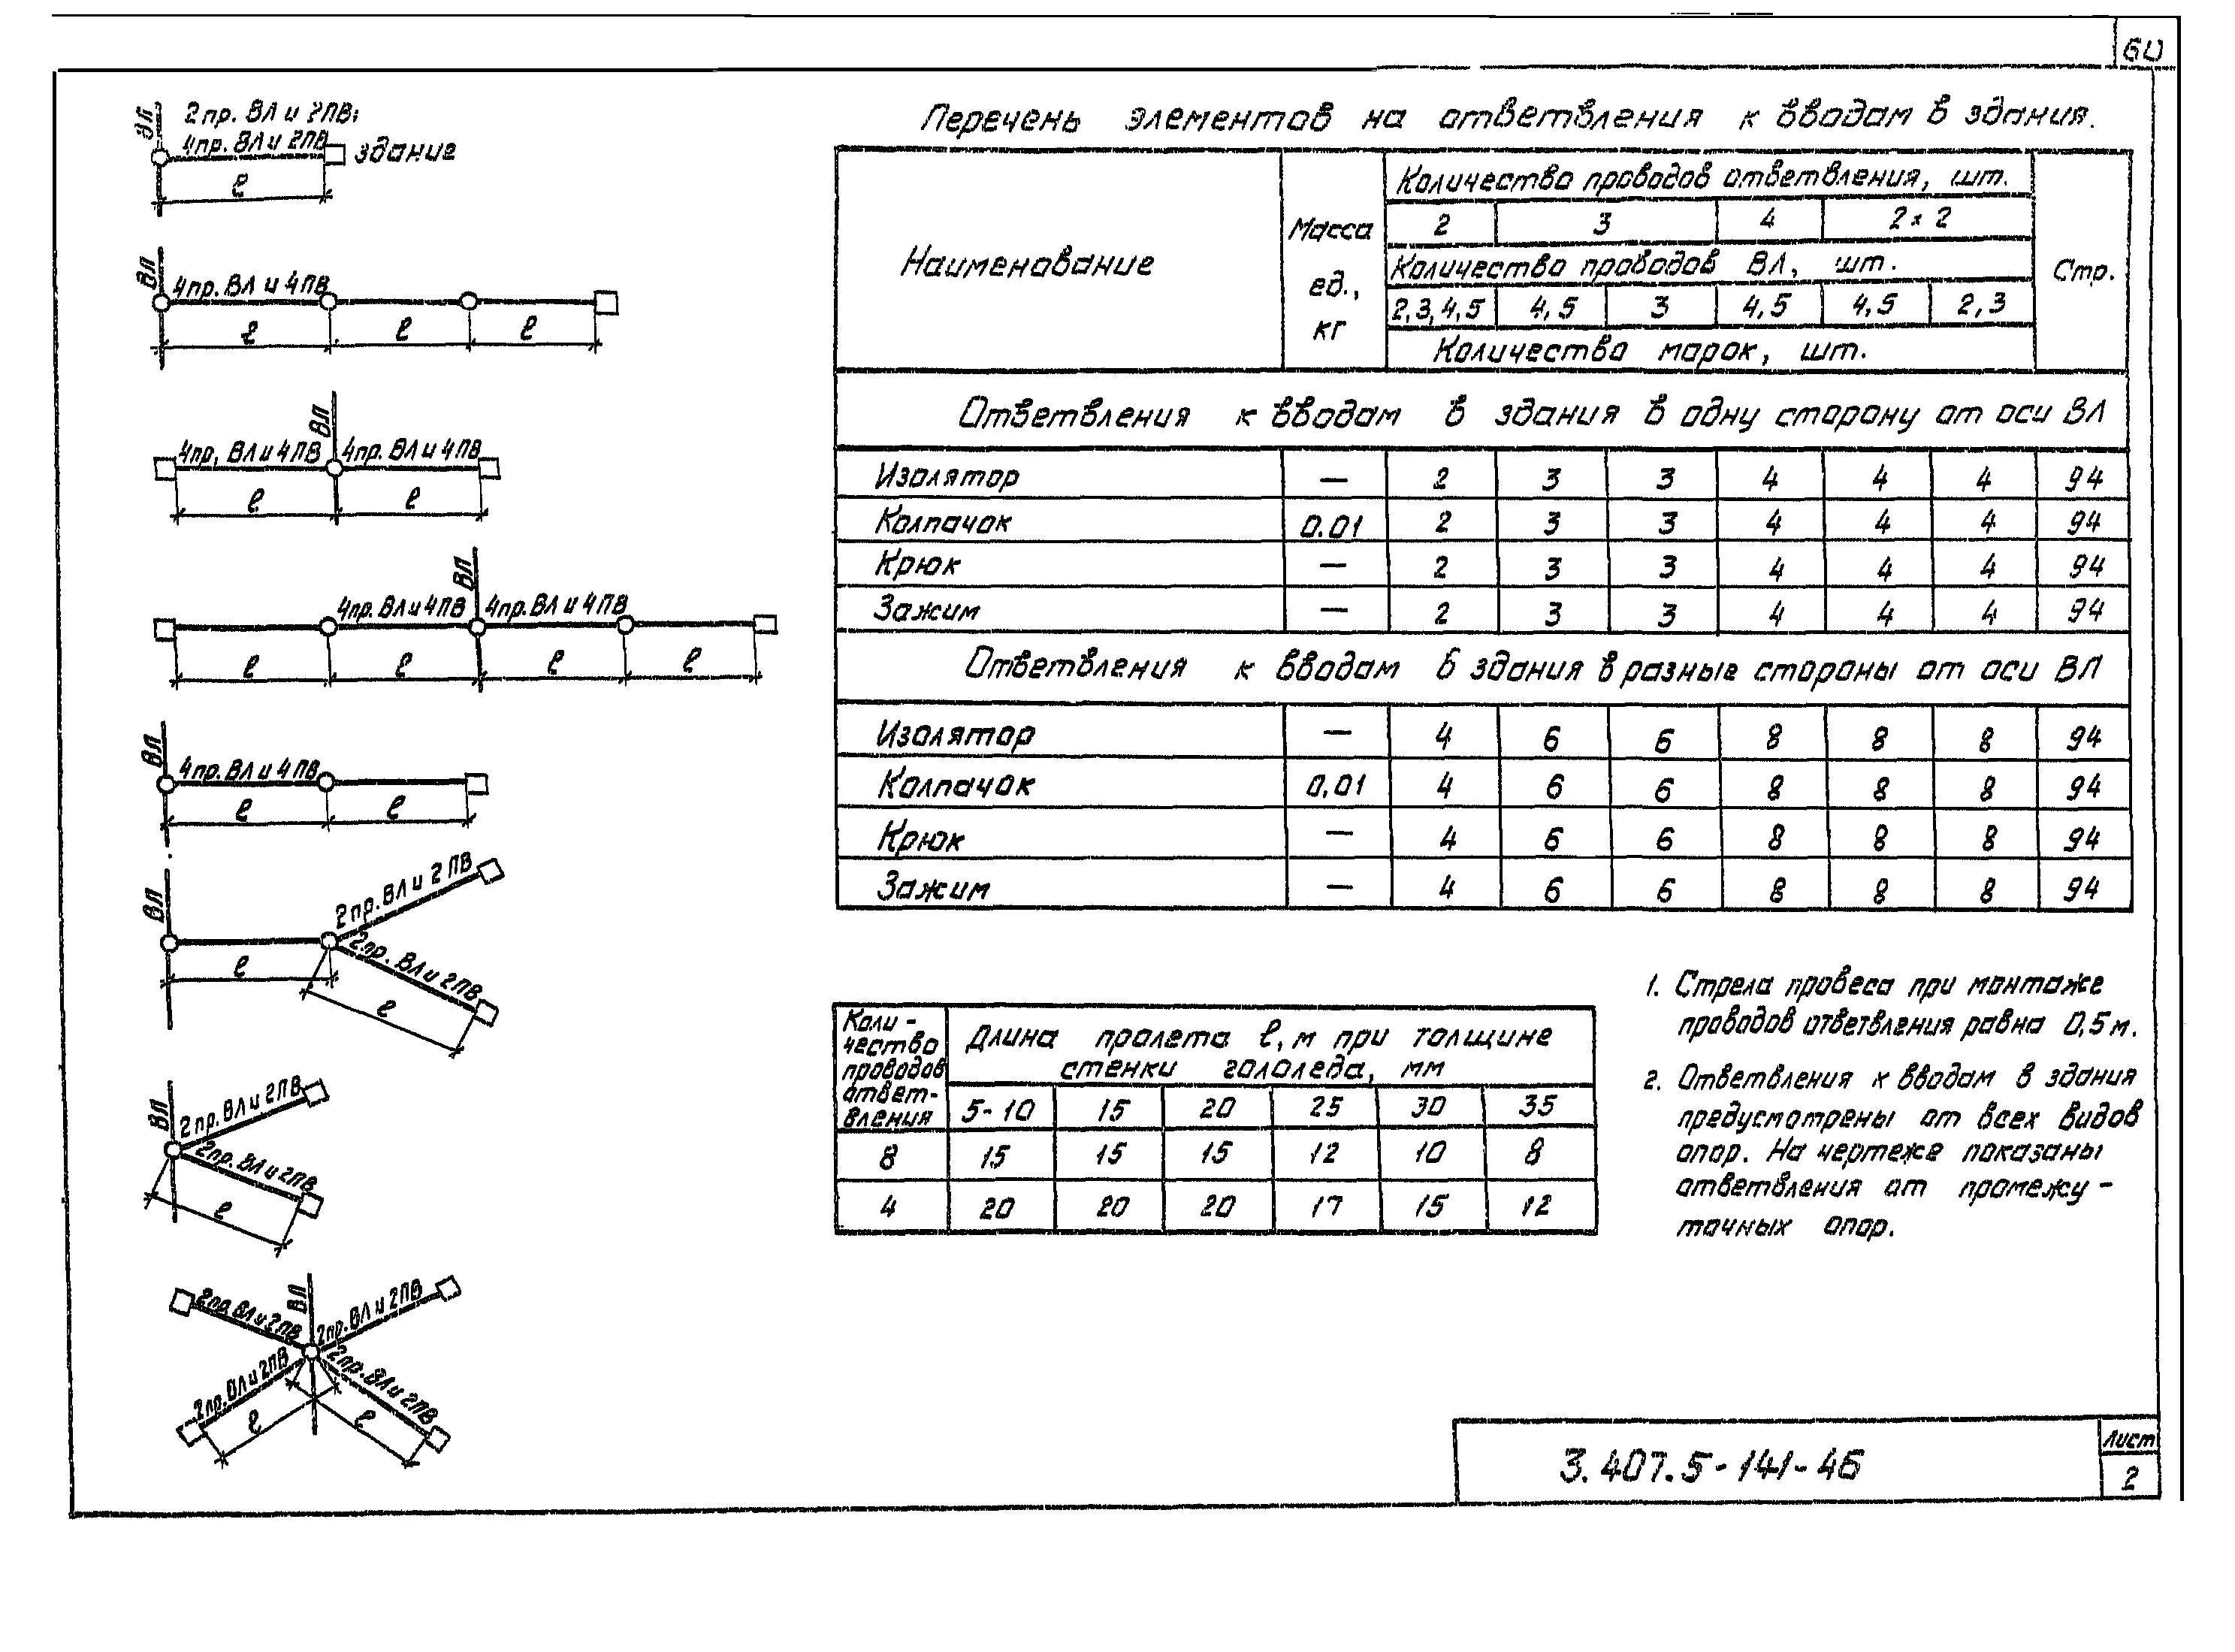 60
2пр. ВЛ и 2ПВ;
4пр. ВЛ и 2ПВ
ВЛ
здание
ℓ
ВЛ
4пр. ВЛ и 4ПВ
ℓ ℓ ℓ
ВЛ
4пр, ВЛ и 4ПВ 4пр. ВЛ и 4ПВ
ℓ ℓ
ВЛ
4пр. ВЛ и 4ПВ 4пр. ВЛ и 4ПВ
ℓ ℓ ℓ ℓ
ВЛ
4пр. ВЛ и 4ПВ
ℓ ℓ
ВЛ
2пр. ВЛ и 2ПВ
2пр. ВЛ и 2ПВ
ℓ
ℓ
ВЛ
2пр. ВЛ и 2ПВ
2пр. ВЛ и 2ПВ
ℓ
ВЛ
2пр. ВЛ и 2ПВ 2пр. ВЛ и 2ПВ
2пр. ВЛ и 2ПВ 2пр. ВЛ и 2ПВ
ℓ ℓ
Перечень элементов на ответвления к вводам в здания.
Наименование
Масса
ед.,
кг
Количество проводов ответвления, шт.
2 3 4 2×2
Количество проводов ВЛ, шт.
2,3,4,5 4,5 3 4,5 4,5 2,3
Количество марок, шт.
Стр.
Ответвления к вводам в здания в одну сторону от оси ВЛ
Изолятор — 2 3 3 4 4 4 94
Колпачок 0.01 2 3 3 4 4 4 94
Крюк — 2 3 3 4 4 4 94
Зажим — 2 3 3 4 4 4 94
Ответвления к вводам в здания в разные стороны от оси ВЛ
Изолятор — 4 6 6 8 8 8 94
Колпачок 0,01 4 6 6 8 8 8 94
Крюк — 4 6 6 8 8 8 94
Зажим — 4 6 6 8 8 8 94
Коли-
чество
проводов
ответ-
вления
Длина пролета ℓ, м при толщине
стенки гололеда, мм
5-10 15 20 25 30 35
8 15 15 15 12 10 8
4 20 20 20 17 15 12
1. Стрела провеса при монтаже
проводов ответвления равна 0,5м.
2. Ответвления к вводам в здания
предусмотрены от всех видов
опор. На чертеже показаны
ответвления от промежу-
точных опор.
3.407.5-141-46
Лист
2